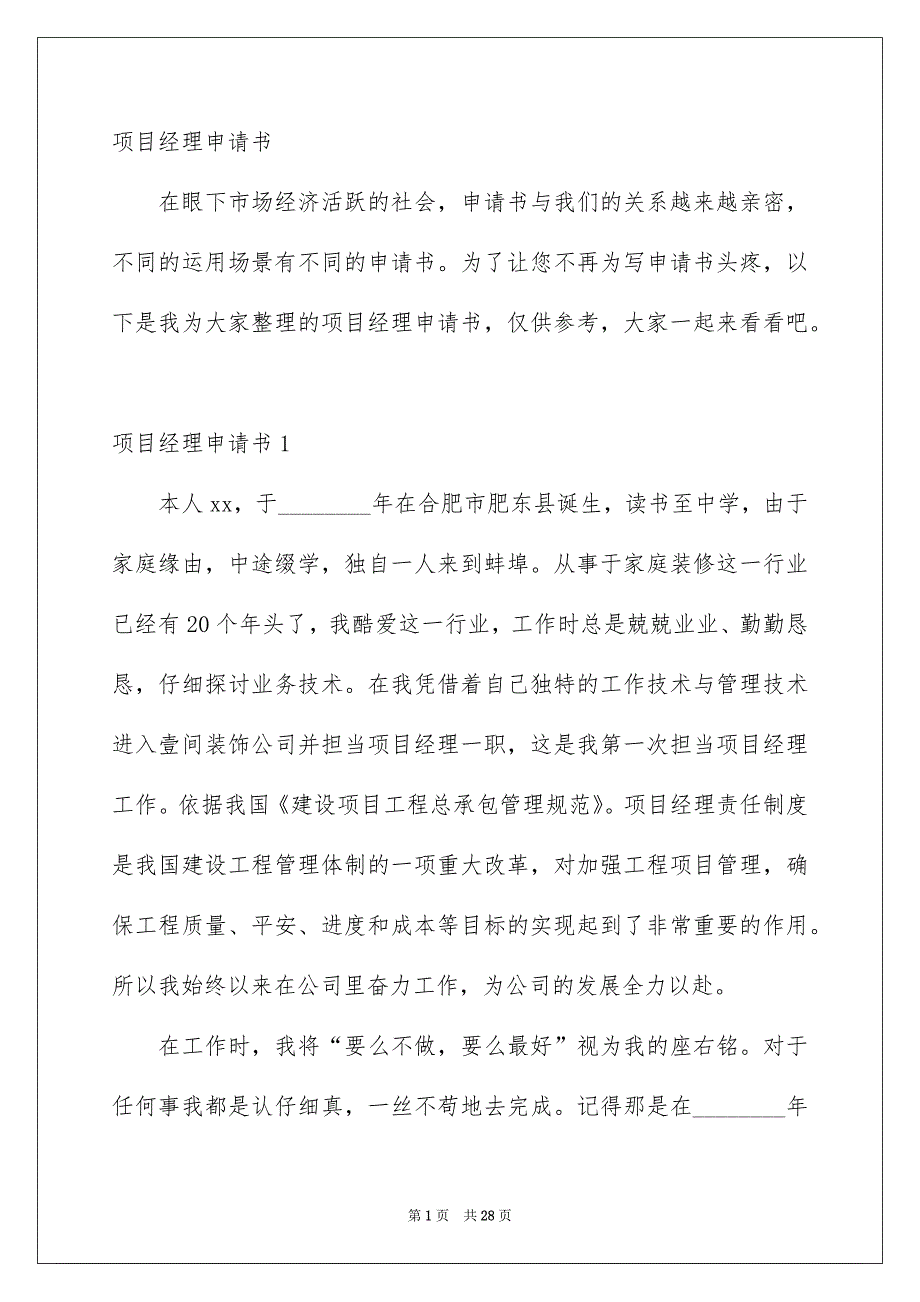 项目经理申请书
在眼下市场经济活跃的社会，申请书与我们的关系越来越亲密，
不同的运用场景有不同的申请书。为了让您不再为写申请书头疼，以
下是我为大家整理的项目经理申请书，仅供参考，大家一起来看看吧。
项目经理申请书 1
本人 xx，于________年在合肥市肥东县诞生，读书至中学，由于
家庭缘由，中途缀学，独自一人来到蚌埠。从事于家庭装修这一行业
已经有 20 个年头了，我酷爱这一行业，工作时总是兢兢业业、勤勤恳
恳，仔细探讨业务技术。在我凭借着自己独特的工作技术与管理技术
进入壹间装饰公司并担当项目经理一职，这是我第一次担当项目经理
工作。依据我国《建设项目工程总承包管理规范》。项目经理责任制度
是我国建设工程管理体制的一项重大改革，对加强工程项目管理，确
保工程质量、平安、进度和成本等目标的实现起到了非常重要的作用。
所以我始终以来在公司里奋力工作，为公司的发展全力以赴。
在工作时，我将“要么不做，要么最好”视为我的座右铭。对于
任何事我都是认仔细真，一丝不苟地去完成。记得那是在________年
第 1 页 共 28 页